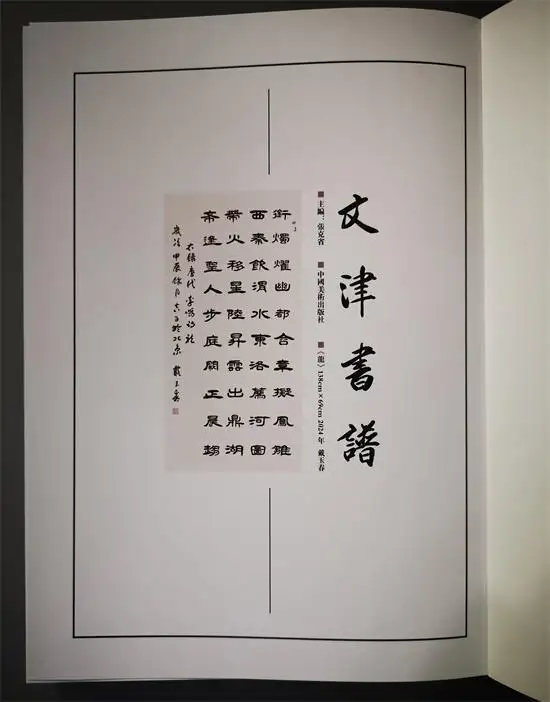 文津書譜
■ 主編：張克省 ■ 中國美術出版社 ■ 《龍》138cm×69cm 2024年 戴玉春
銜燭燿幽都含章擬鳳雛
西秦飲渭水東洛薦河圖
帶火移星陸昇雲出鼎湖
希逢聖人步庭闕正晨趨
右錄唐代李嶠詩龍
歲次甲辰 於北京 戴玉春